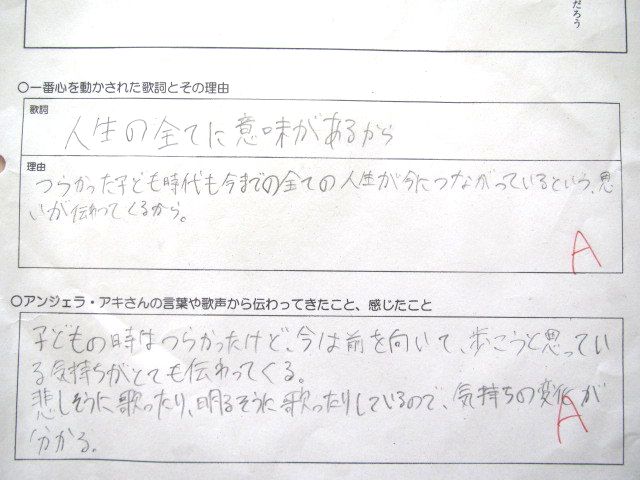 だろう
○一番心を動かされた歌詞とその理由
歌詞
人生の全てに意味があるから
理由
つらかった子ども時代も今までの全ての人生が今につながっているという、思
いが伝わってくるから。
A
○アンジェラ・アキさんの言葉や歌声から伝わってきたこと、感じたこと
子どもの時はつらかったけど、今は前を向いて、歩こうと思ってい
る気持ちがとても伝わってくる。
悲しそうに歌ったり、明るそうに歌ったりしているので、気持ちの変化が
分かる。
A